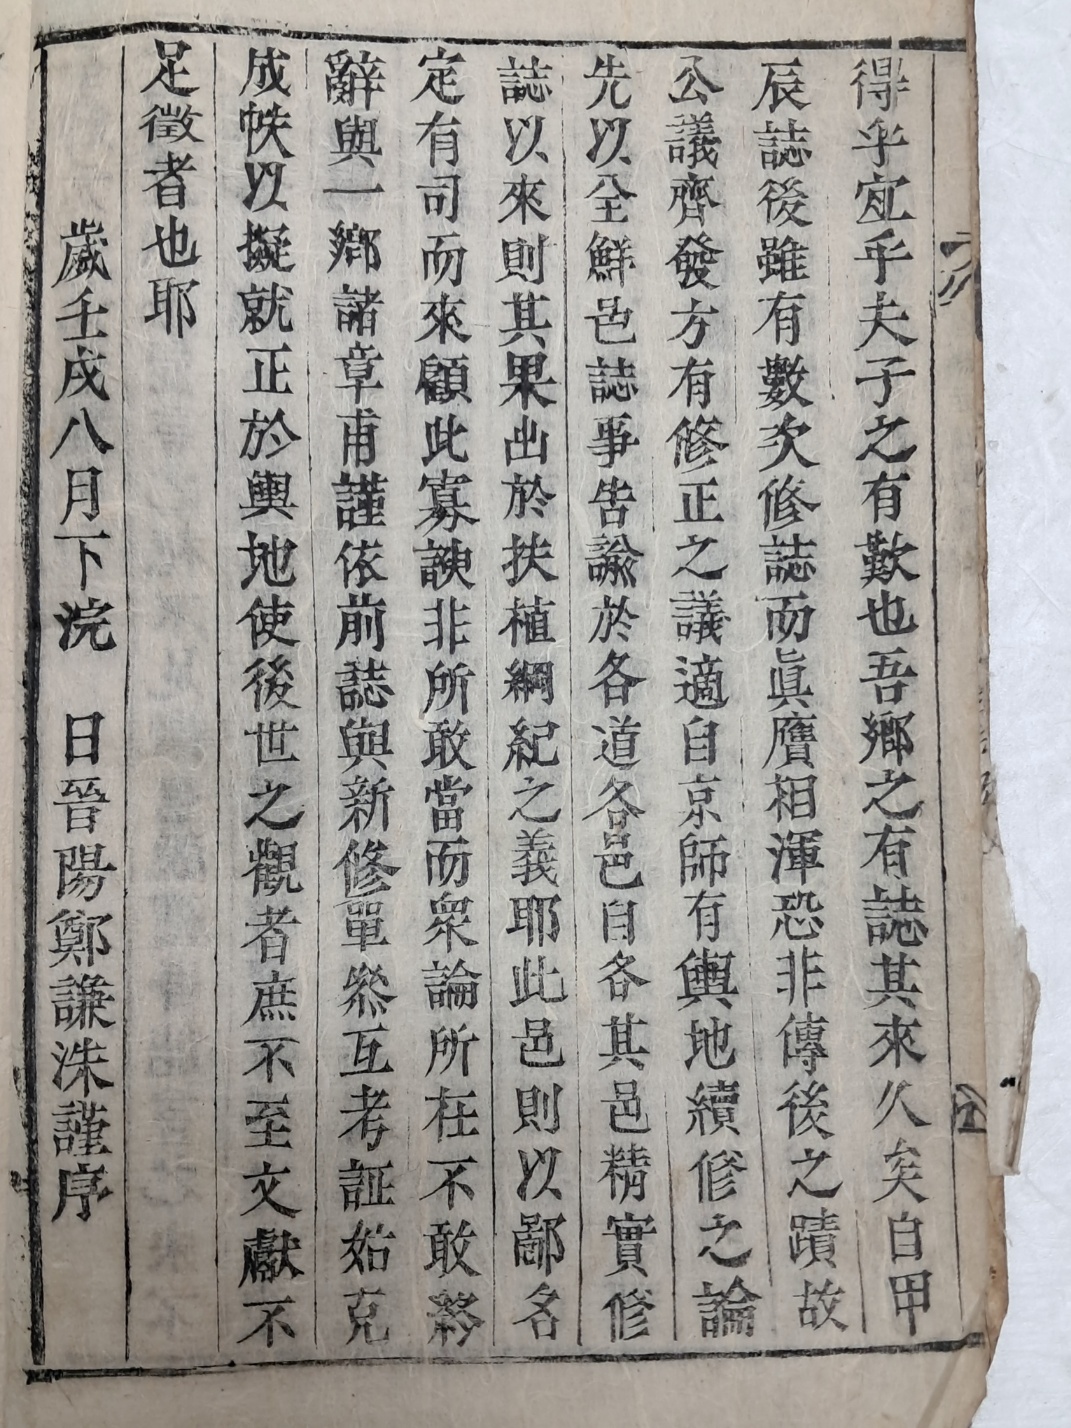 得乎宜乎夫子之有歎也吾鄕之有誌其來久矣自甲
辰誌後雖有數次修誌而眞贋相渾恐非傳後之蹟故
公議齊發方有修正之議適自京師有輿地續修之論
先以全鮮邑誌事告諭於各道各邑自各其邑精實修
誌以來則其果出於扶植綱紀之義耶此邑則以鄙名
定有司而來顧此寡諛非所敢當而衆論所在不敢終
辭與一鄕諸章甫謹依前誌與新修單叅互考証始克
成帙以擬就正於輿地使後世之觀者庶不至文獻不
足徵者也耶
歲壬戌八月下浣 日晉陽鄭謙洙謹序